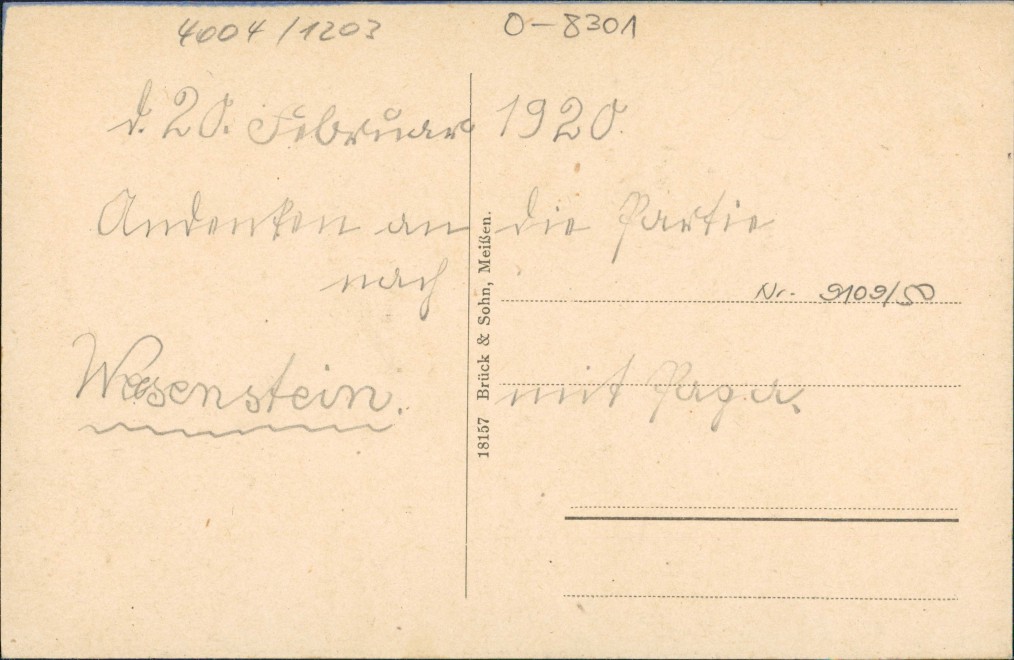 4004/1203
O-8301
d. 20. Februar 1920.
Andenken an die Partie
nach
Nr. 9109/50
Wesenstein. mit Papa.
18157 Brück & Sohn, Meißen.